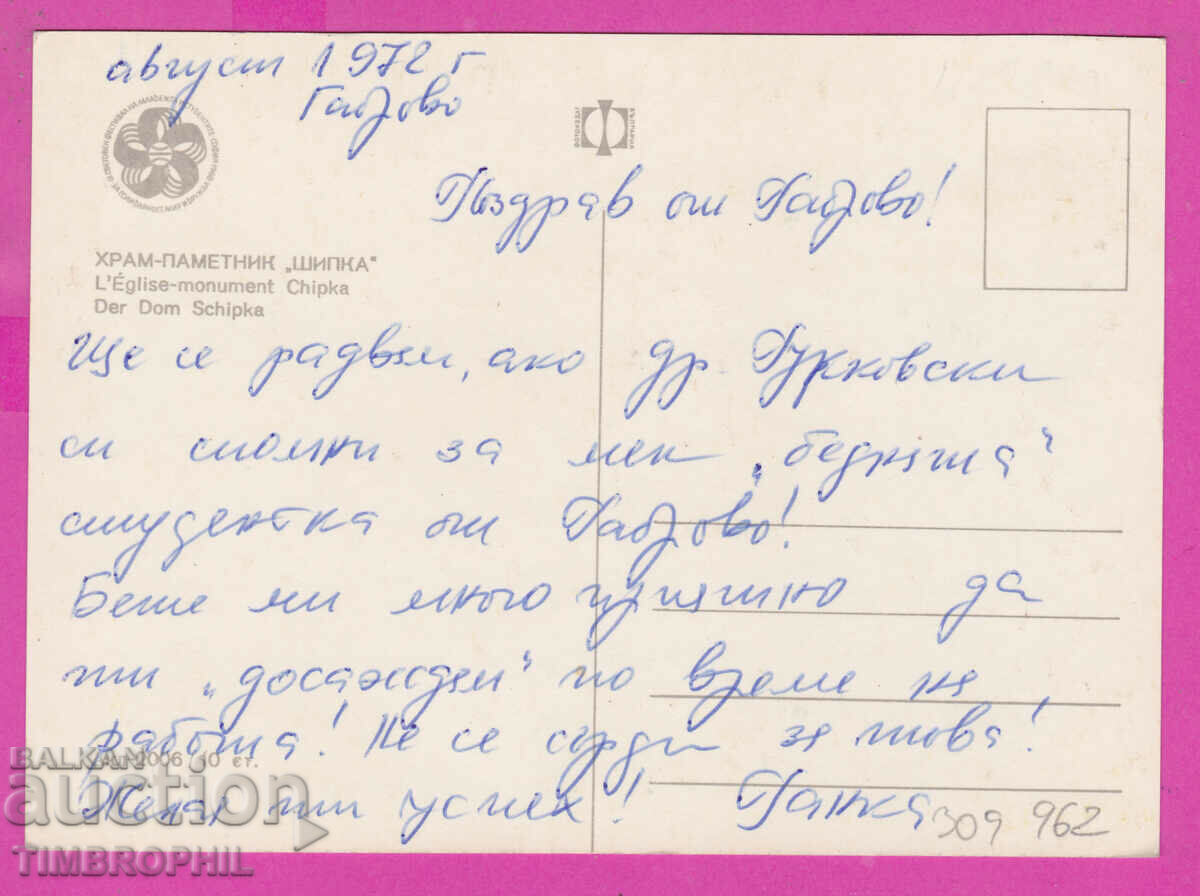 август 1972 г
Габрово
ФОТОИЗДАТ
БЪЛГАРИЯ
Поздрав от Габрово!
ХРАМ-ПАМЕТНИК „ШИПКА"
L'Église-monument Chipka
Der Dom Schipka
Ще се радвам, ако др. Гурковски
си спомни за мен „бедната"
студентка от Габрово!
Беше ми много приятно да
ти „досаждам" по време на
работа! Не се сърди за това!
Желая ти успех! Ганка
2006 10 ст.
309 962
BALKAN
auction
TIMBROPHIL